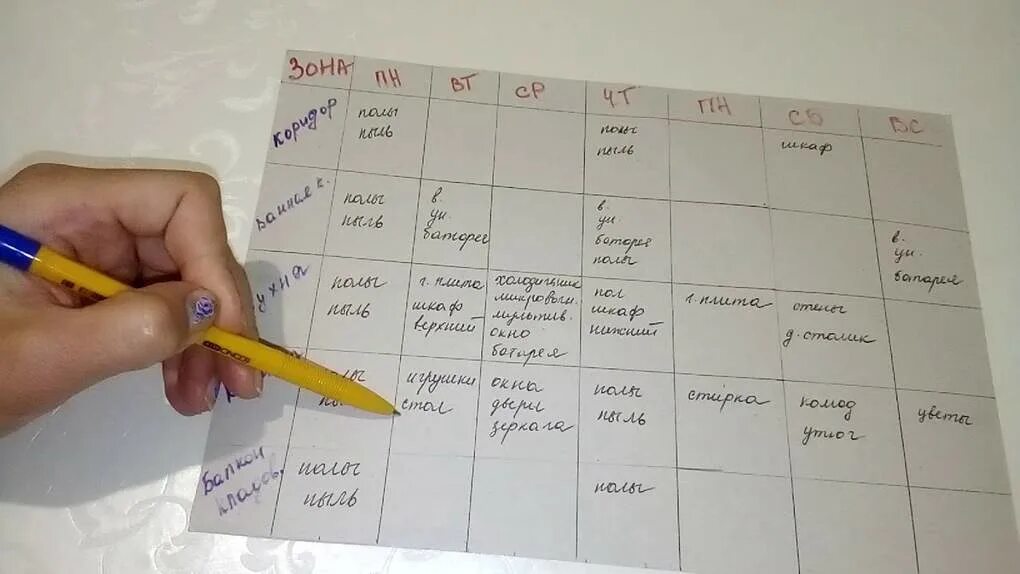 ЗОНА ПН ВТ СР ЧТ ПН СБ ВС
коридор
полы
пыль
полы
пыль
шкаф
ванная к.
полы
пыль
в.
ун.
батарея
в.
ун.
батарея
полы
в.
ун.
батарея
ухня
полы
пыль
г. плита
шкаф
верхний
холодильник
микроволн.
мультив.
окно
батарея
пол
шкаф
нижний
г. плита
стены
д. столик
игрушки
стол
окна
двери
зеркала
полы
пыль
стирка
комод
утюг
цветы
Балкон
кладов.
полы
пыль
полы